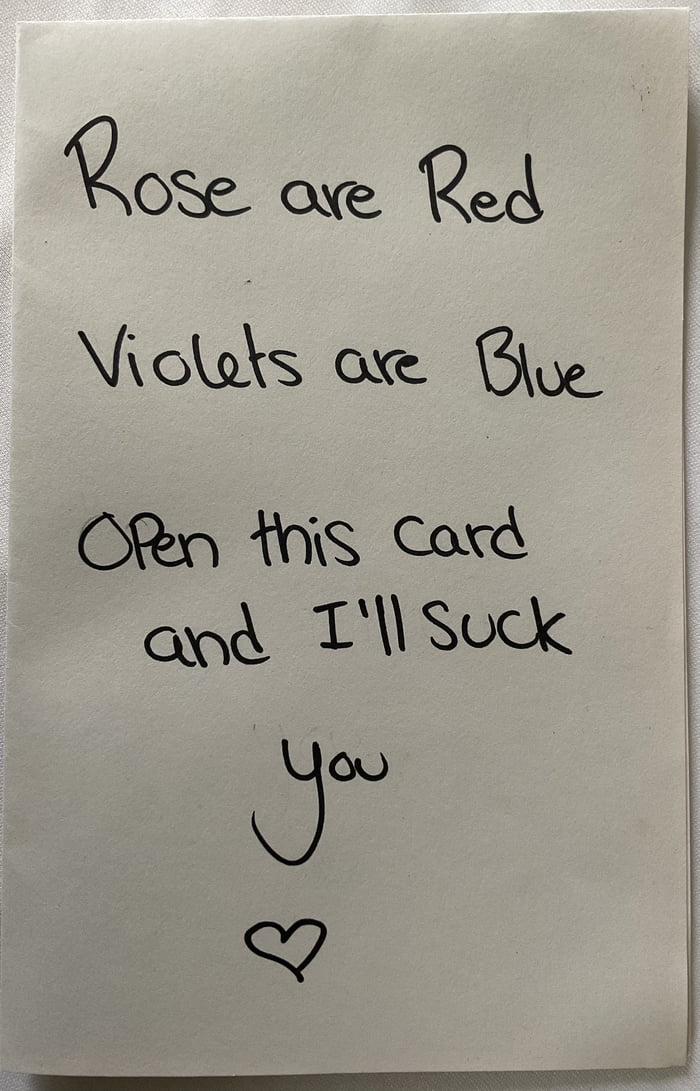 Rose are Red
Violets are Blue
Open this card
and I'll suck
you